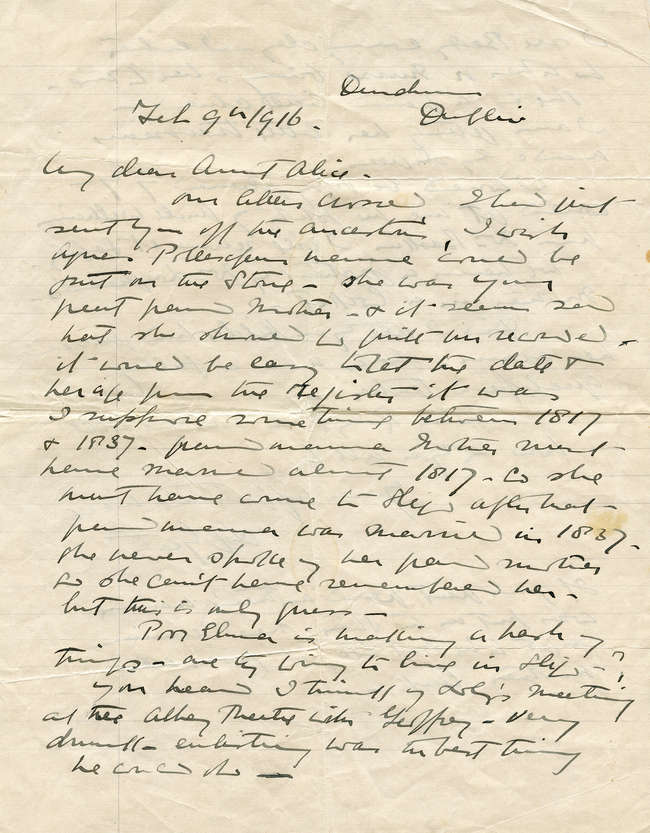 Dundrum
Dublin
Feb 9th 1916.
My dear Aunt Alice -
our letters crossed I had just
sent you off the ancestors I wish
Agnes Pollexfen name could be
put on the Stone - she was your
great grand Mother - & it seems sad
that she should be quite unrecorded -
it would be easy to get the date &
her age from the Register it was
I suppose something between 1817
& 1837 - grandmama Mother must
have married about 1817 - so she
must have come to Sligo after that -
grandmama was married in 1837 -
she never spoke of her grand mother
so she can't have remembered her -
but this is only guess -
Poor Elma is making a hash of
things - are they going to live in Sligo - ?
you heard I think of Loly's meeting
at the Abbey Theatre with Geoffrey - very
drunk - enlisting was the best thing
he could do -